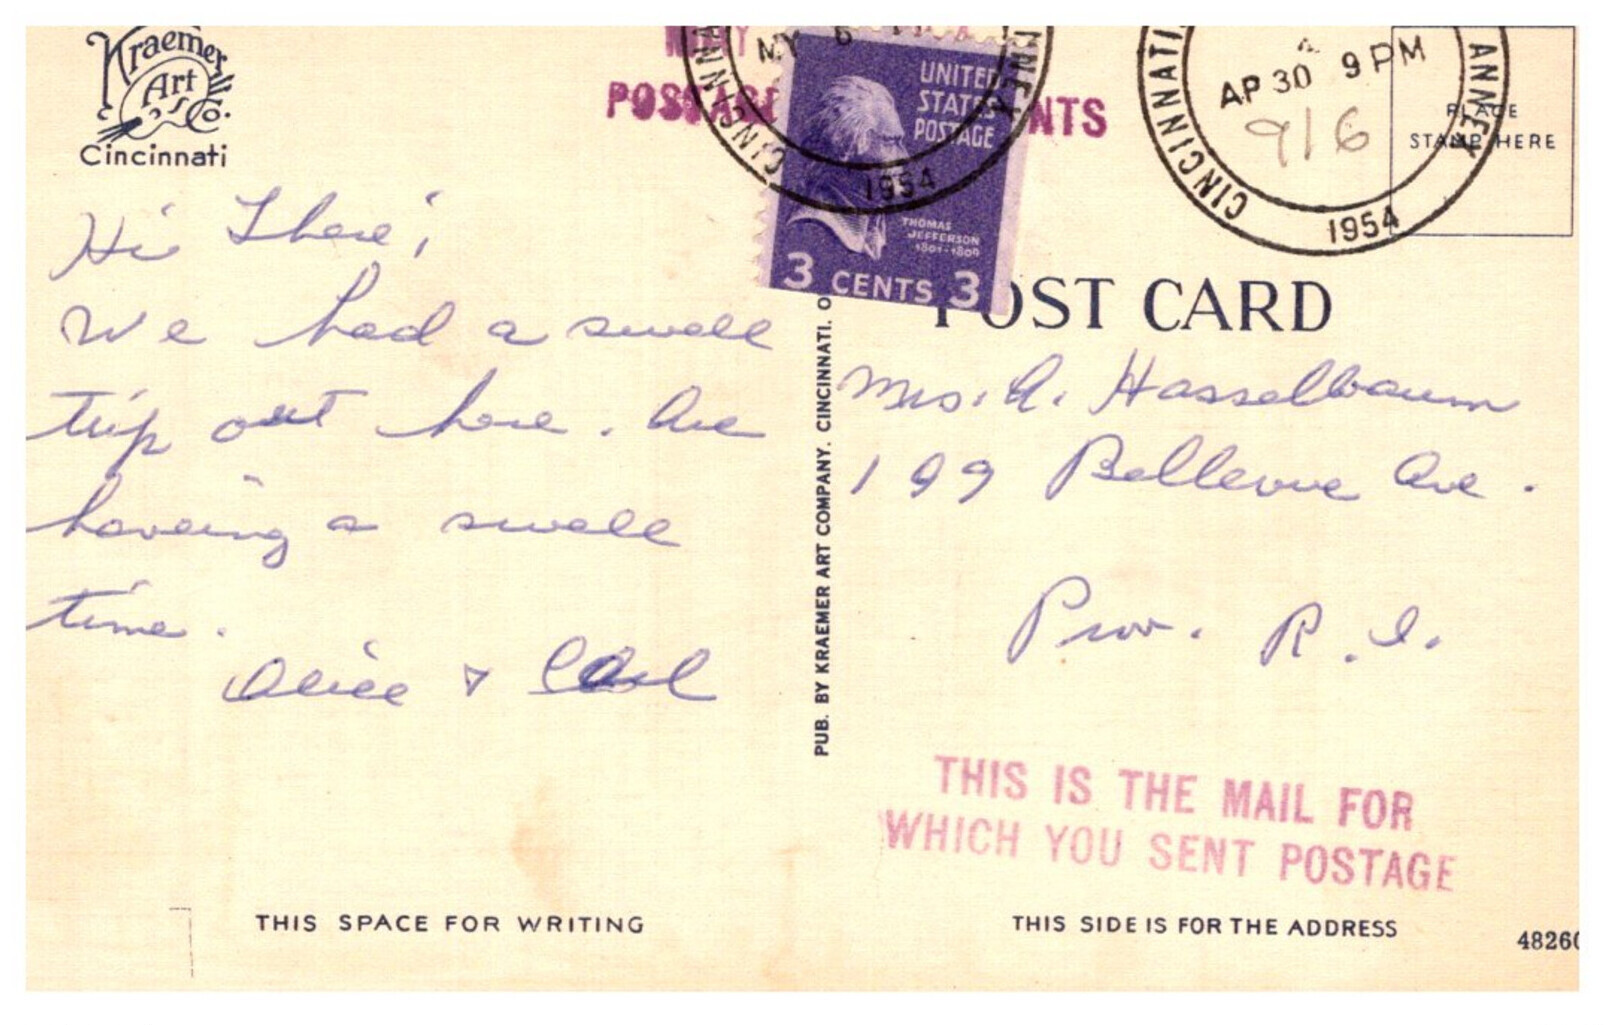 Kraemer
Art
Co.
Cincinnati
POSTAGE
NTS
MY 6
CINCINNATI
ANNEX
1954
UNITED
STATES
POSTAGE
THOMAS
JEFFERSON
1801-1809
3 CENTS 3
AP 30 9 PM
916
CINCINNATI
ANNEX
1954
PLACE
STAMP HERE
POST CARD
Hi There;
We had a swell
trip out here. Are
haveing a swell
time.
Alice & Carl
PUB. BY KRAEMER ART COMPANY, CINCINNATI, O
Mrs. A. Hasselbaum
199 Bellevue Ave.
Prov. R.I.
THIS IS THE MAIL FOR
WHICH YOU SENT POSTAGE
THIS SPACE FOR WRITING
THIS SIDE IS FOR THE ADDRESS
48260